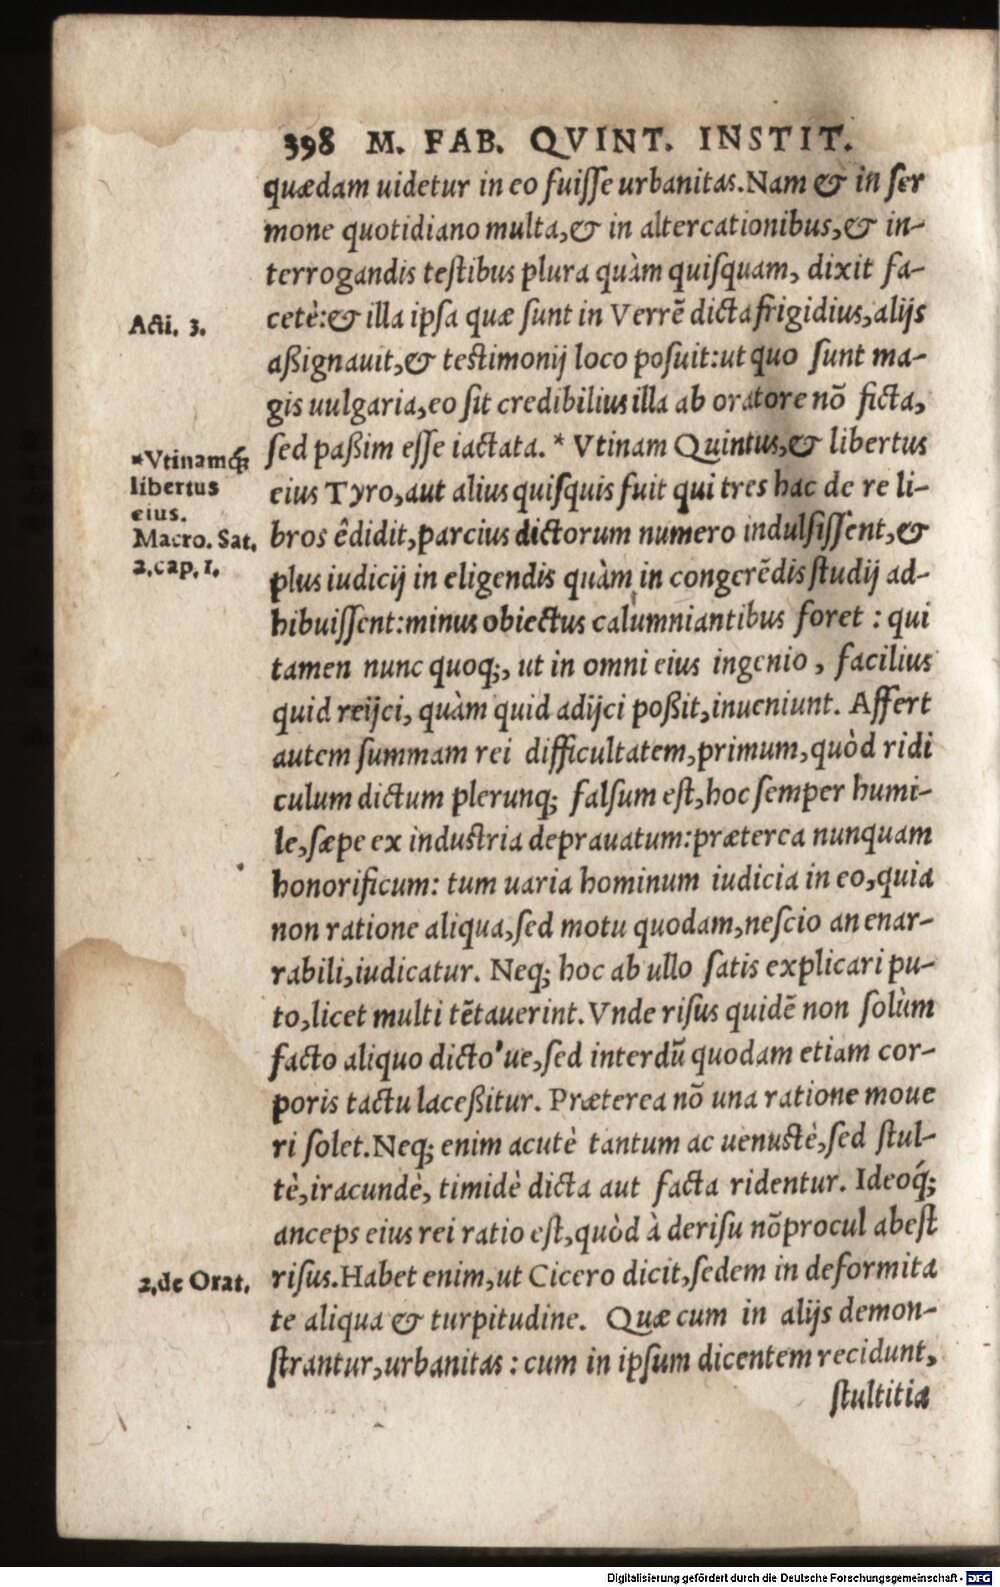 398 M. FAB. QVINT. INSTIT.
quædam uidetur in eo fuiſſe urbanitas. Nam & in ſer
mone quotidiano multa, & in altercationibus, & in-
terrogandis teſtibus plura quàm quiſquam, dixit fa-
Acti. 3.
cetè: & illa ipſa quæ ſunt in Verrē dicta frigidius, alijs
aßignauit, & teſtimonij loco poſuit: ut quo ſunt ma-
gis uulgaria, eo ſit credibilius illa ab oratore nō ficta,
ſed paßim eſſe iactata. * Vtinam Quintus, & libertus
*Vtinamq́;
libertus
eius.
Macro. Sat.
2. cap. 1.
eius Tyro, aut alius quiſquis fuit qui tres hac de re li-
bros êdidit, parcius dictorum numero indulſiſſent, &
plus iudicij in eligendis quàm in congerēdis ſtudij ad-
hibuiſſent: minus obiectus calumniantibus foret : qui
tamen nunc quoq;, ut in omni eius ingenio, facilius
quid reijci, quàm quid adijci poßit, inueniunt. Affert
autem ſummam rei difficultatem, primum, quòd ridi
culum dictum plerunq; falſum eſt, hoc ſemper humi-
le, ſæpe ex induſtria deprauatum: præterea nunquam
honorificum: tum uaria hominum iudicia in eo, quia
non ratione aliqua, ſed motu quodam, neſcio an enar-
rabili, iudicatur. Neq; hoc ab ullo ſatis explicari pu-
to, licet multi tētauerint. Vnde riſus quidē non ſolùm
facto aliquo dicto'ue, ſed interdū quodam etiam cor-
poris tactu laceßitur. Præterea nō una ratione moue
ri ſolet. Neq; enim acutè tantum ac uenuſtè, ſed ſtul-
tè, iracundè, timidè dicta aut facta ridentur. Ideoq́;
anceps eius rei ratio eſt, quòd à deriſu nō procul abeſt
2. de Orat.
riſus. Habet enim, ut Cicero dicit, ſedem in deformita
te aliqua & turpitudine. Quæ cum in alijs demon-
ſtrantur, urbanitas : cum in ipſum dicentem recidunt,
ſtultitia
Digitalisierung gefördert durch die Deutsche Forschungsgemeinschaft - DFG